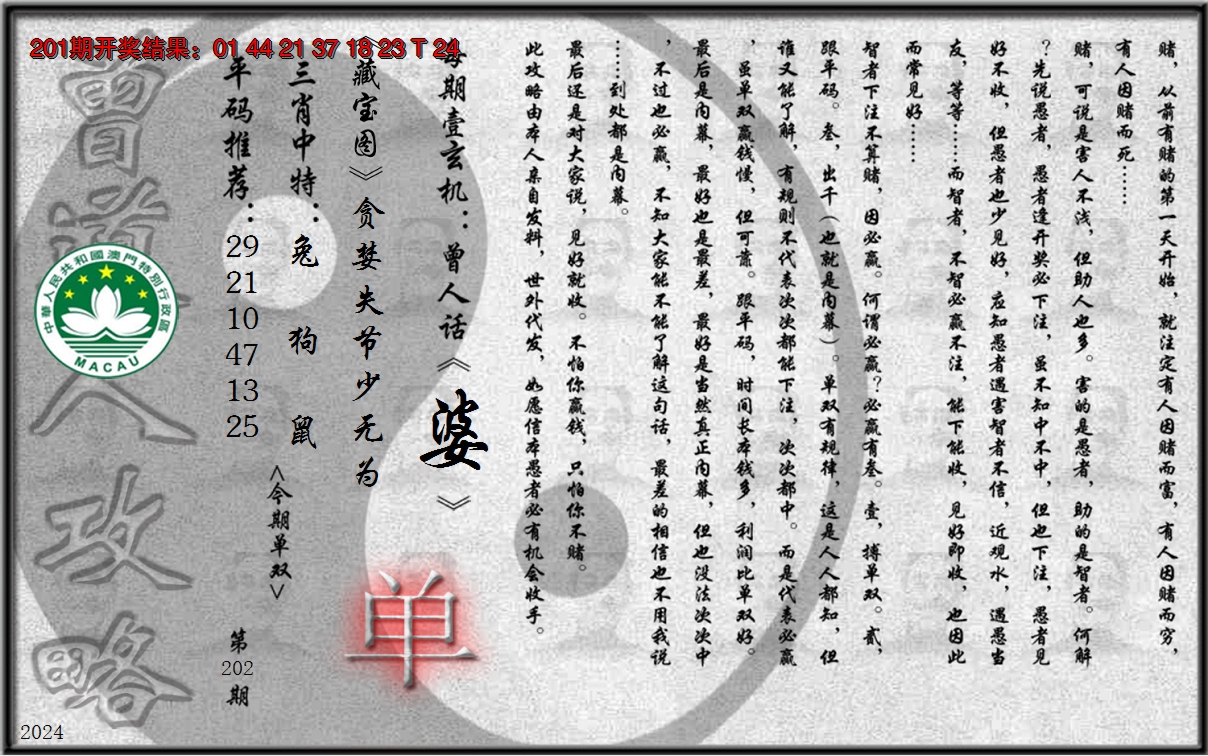 201期开奖结果：01 44 21 37 18 23 T 24
赌，从前有赌的第一天开始，就注定有人因赌而富，有人因赌而穷，
有人因赌而死……
赌，可说是害人不浅，但助人也多。害的是愚者，助的是智者。何解
？先说愚者，愚者逢开奖必下注，虽不知中不中，但也下注，愚者见
好不收，但愚者也少见好，应知愚者遇害智者不信，近观水，遇愚当
友，等等……而智者，不智必赢不注，能下能收，见好即收，也因此
而常见好……
智者下注不算赌，因必赢。何谓必赢？必赢有叁。壹，搏单双。贰，
跟平码。叁，出千（也就是内幕）。单双有规律，这是人人都知，但
谁又能了解，有规则不代表次次都能下注，次次都中。而是代表必赢
，虽单双赢钱慢，但可靠。跟平码，时间长本钱多，利润比单双好。
最后是内幕，最好也是最差，最好是当然真正内幕，但也没法次次中
，不过也必赢，不知大家能不能了解这句话，最差的相信也不用我说
……到处都是内幕。
最后还是对大家说，见好就收。不怕你赢钱，只怕你不赌。
此攻略由本人亲自发料，世外代发，如愿信本愚者必有机会收手。
每期壹玄机：曾人话《婆》
《藏宝图》贪婪失节少无为
三肖中特：兔 狗 鼠
<今期单双>
单
平码推荐：29 21 10 47 13 25
第202期
曾道人攻略
中華人民共和國澳門特別行政區
MACAU
2024